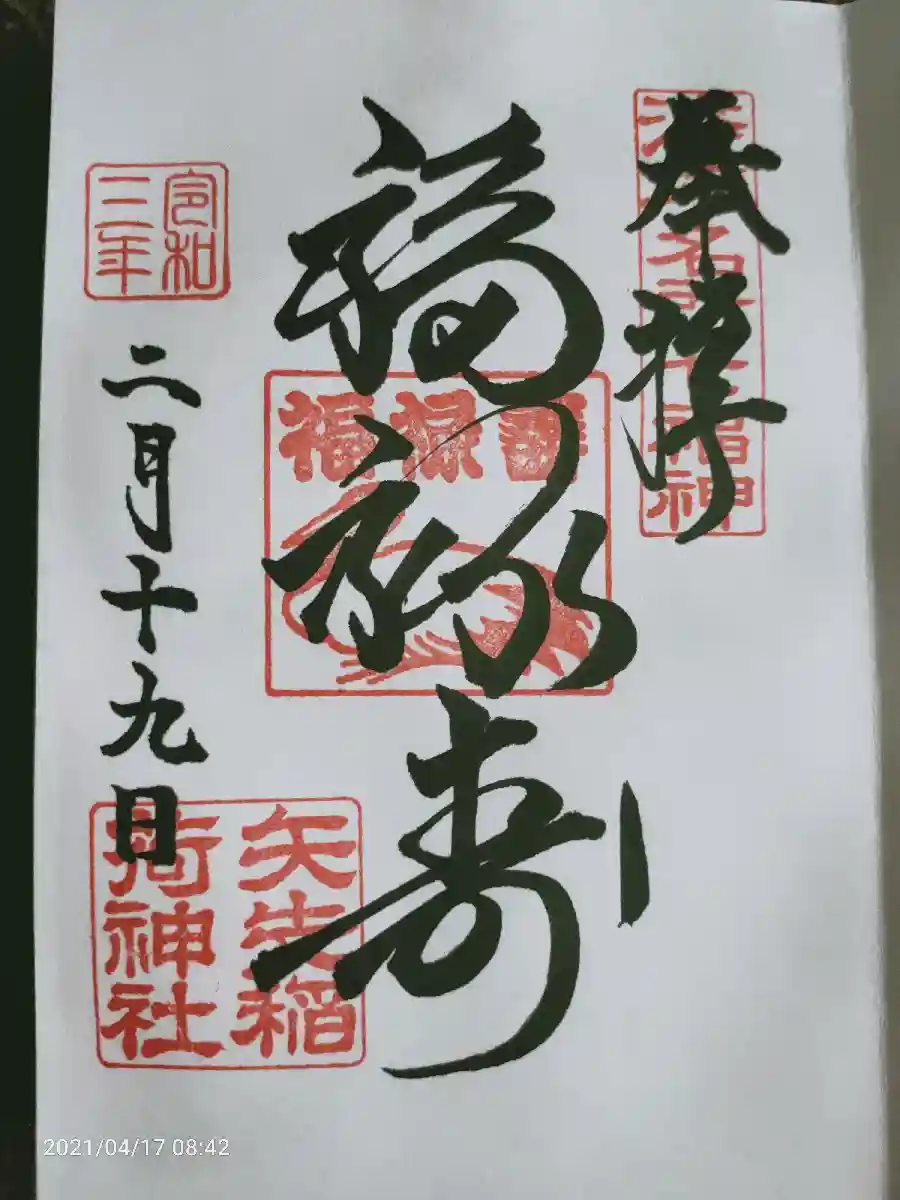 奉拝
浅草名所七福神
福禄寿
福禄寿
令和
三年
二月十九日
矢先稲
荷神社
2021/04/17 08:42